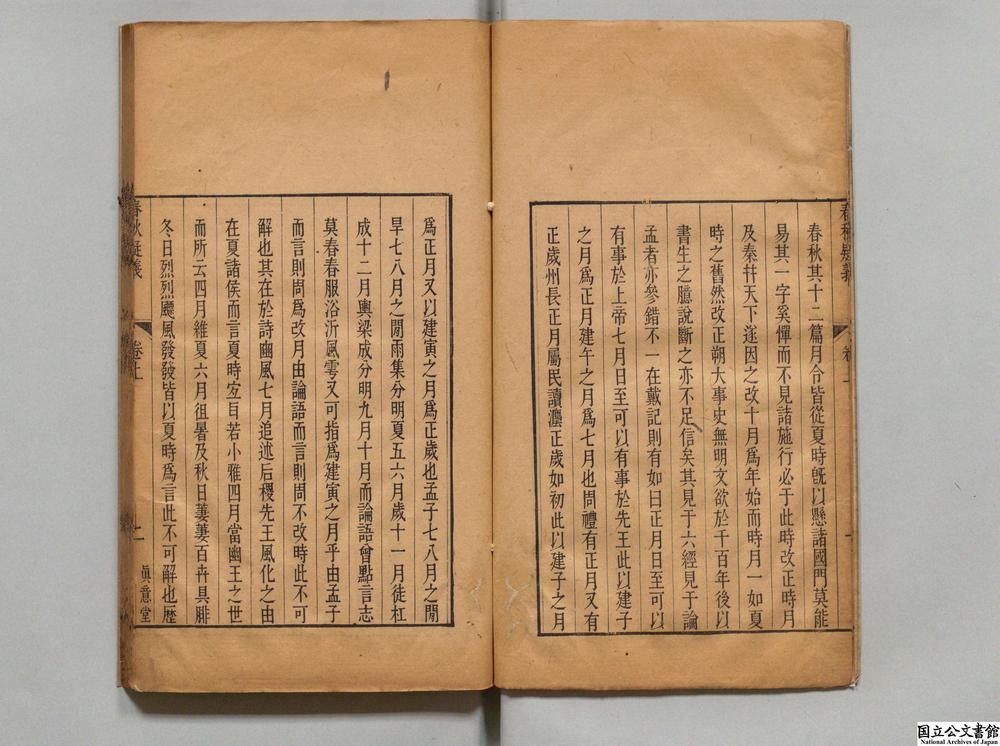 春秋其十二篇月令皆從夏時旣以懸諸國門莫能
易其一字奚憚而不見諸施行必于此時改正時月
及秦幷天下遂因之改十月爲年始而時月一如夏
時之舊然改正朔大事史無明文欲於千百年後以
書生之臆說斷之亦不足信矣其見于六經見于論
孟者亦參錯不一在戴記則有如曰正月日至可以
有事於上帝七月日至可以有事於先王此以建子
之月爲正月建午之月爲七月也周禮有正月又有
正歲州長正月屬民讀灋正歲如初此以建子之月
爲正月又以建寅之月爲正歲也孟子七八月之閒
旱七八月之閒雨集分明夏五六月歲十一月徒杠
成十二月輿梁成分明九月十月而論語曾點言志
莫春春服浴沂風雩又可指爲建寅之月乎由孟子
而言則周爲改月由論語而言則周不改時此不可
解也其在於詩豳風七月追述后稷先王風化之由
在夏諸侯而言夏時宐㠯若小雅四月當幽王之世
而所云四月維夏六月徂暑及秋日萋萋百卉具腓
冬日烈烈飄風發發皆以夏時爲言此不可解也歷
春秋疑義
卷上
眞意堂
国立公文書館
National Archives of Japan